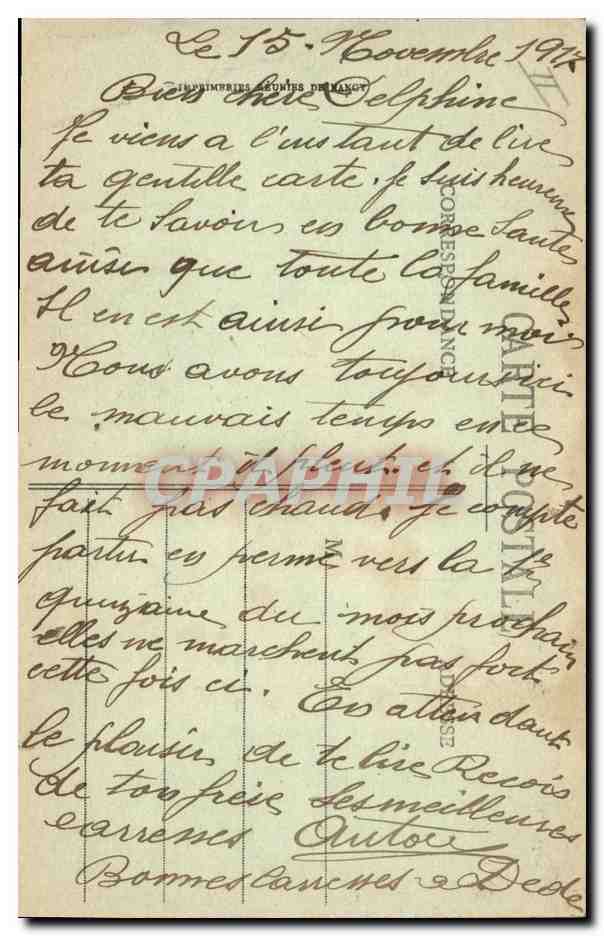 Le 15 - Novembre 1917
IMPRIMERIES REUNIES DE NANCY
Bien chère Delphine
Je viens a l'instant de lire
ta gentille carte. Je suis heureux
de te Savoir en bonne Santé
ainsi que toute la famille
Il en est ainsi pour moi
Nous avons toujours ici
le mauvais temps en ce
moment il pleut et il ne
fait pas chaud. Je compte
partir en perme vers la 1e
quinzaine du mois prochain
elles ne marchent pas fort
cette fois ci. En attendant
le plaisir de te lire Recois
de ton frère Ses meilleures
carresses
Bonnes carresses a Dede
CORRESPONDANCE
CARTE POSTALE
M
CPAPHIL